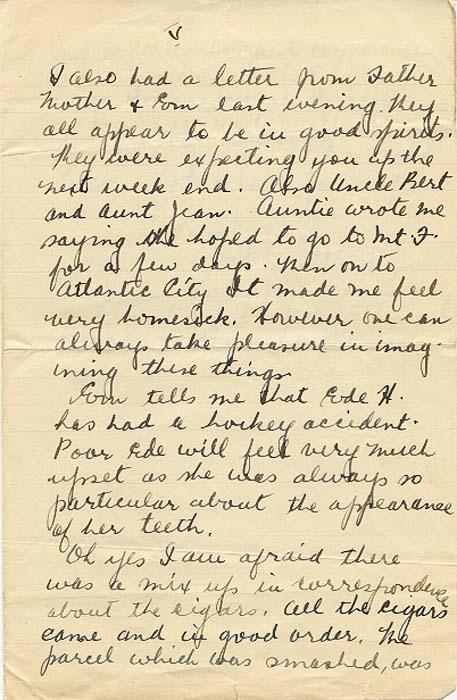 V
I also had a letter from Father
Mother & Eom last evening. They
all appear to be in good spirits.
They were expecting you up the
next week end. Also Uncle Bert
and Aunt Jean. Auntie wrote me
saying she hoped to go to Mt. F.
for a few days. Then on to
Atlantic City It made me feel
very homesick. However one can
always take pleasure in imag-
ining these things.
Eom tells me that Ede H.
has had a hockey accident.
Poor Ede will feel very much
upset as she was always so
particular about the appearance
of her teeth.
Oh yes I am afraid there
was a mix up in correspondence
about the cigars. All the cigars
came and in good order. The
parcel which was smashed, was